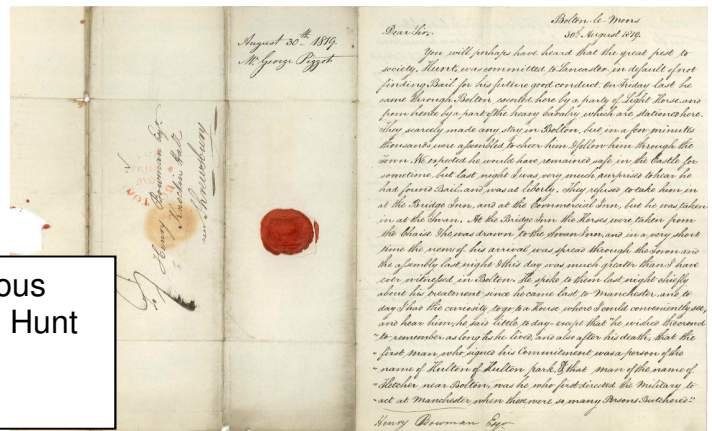 August 30th 1819
Mr George Piggot
Henry Bowman Esqr
near Shrewsbury
ous
Hunt
Bolton-le-Moors
30th August 1819.
Dear Sir.
You will perhaps have heard that the great pest to
society, Hunt, was committed to Lancaster, in default of not
finding Bail for his future good conduct. On Friday last he
came through Bolton escorted here by a party of Light Horse, and
from hence by a part of the heavy Cavalry which are stationed here.
They scarcely made any stay in Bolton, but, in a few minutes
thousands were assembled to cheer him & follow him through the
Town. We expected he would have remained safe in the Castle for
sometime, but last night I was very much surprised to hear he
had found Bail, and was at liberty. They refused to take him in
at the Bridge Inn, and at the Commercial Inn, but he was taken
in at the Swan. At the Bridge Inn the Horses were taken from
the Chaise & he was drawn to the Swan Inn, and in a very short
time the news of his arrival was spread through the Town and
the assembly last night & this day was much greater than I have
ever witnessed in Bolton. He spoke to them last night chiefly
about his treatment since he came last to Manchester, and to
day I had the curiosity to go to a House where I could conveniently see,
and hear him, he said little to day - except that "he wished the crowd
"to remember as long as he lived, and also after his death, that the
"first man, who signed his Commitment, was a person of the
"name of Hulton of Hulton park, & that man of the name of
"Fletcher near Bolton, was he who first directed the Military to
"act at Manchester when there were so many Persons Butchered."
Henry Bowman Esqr